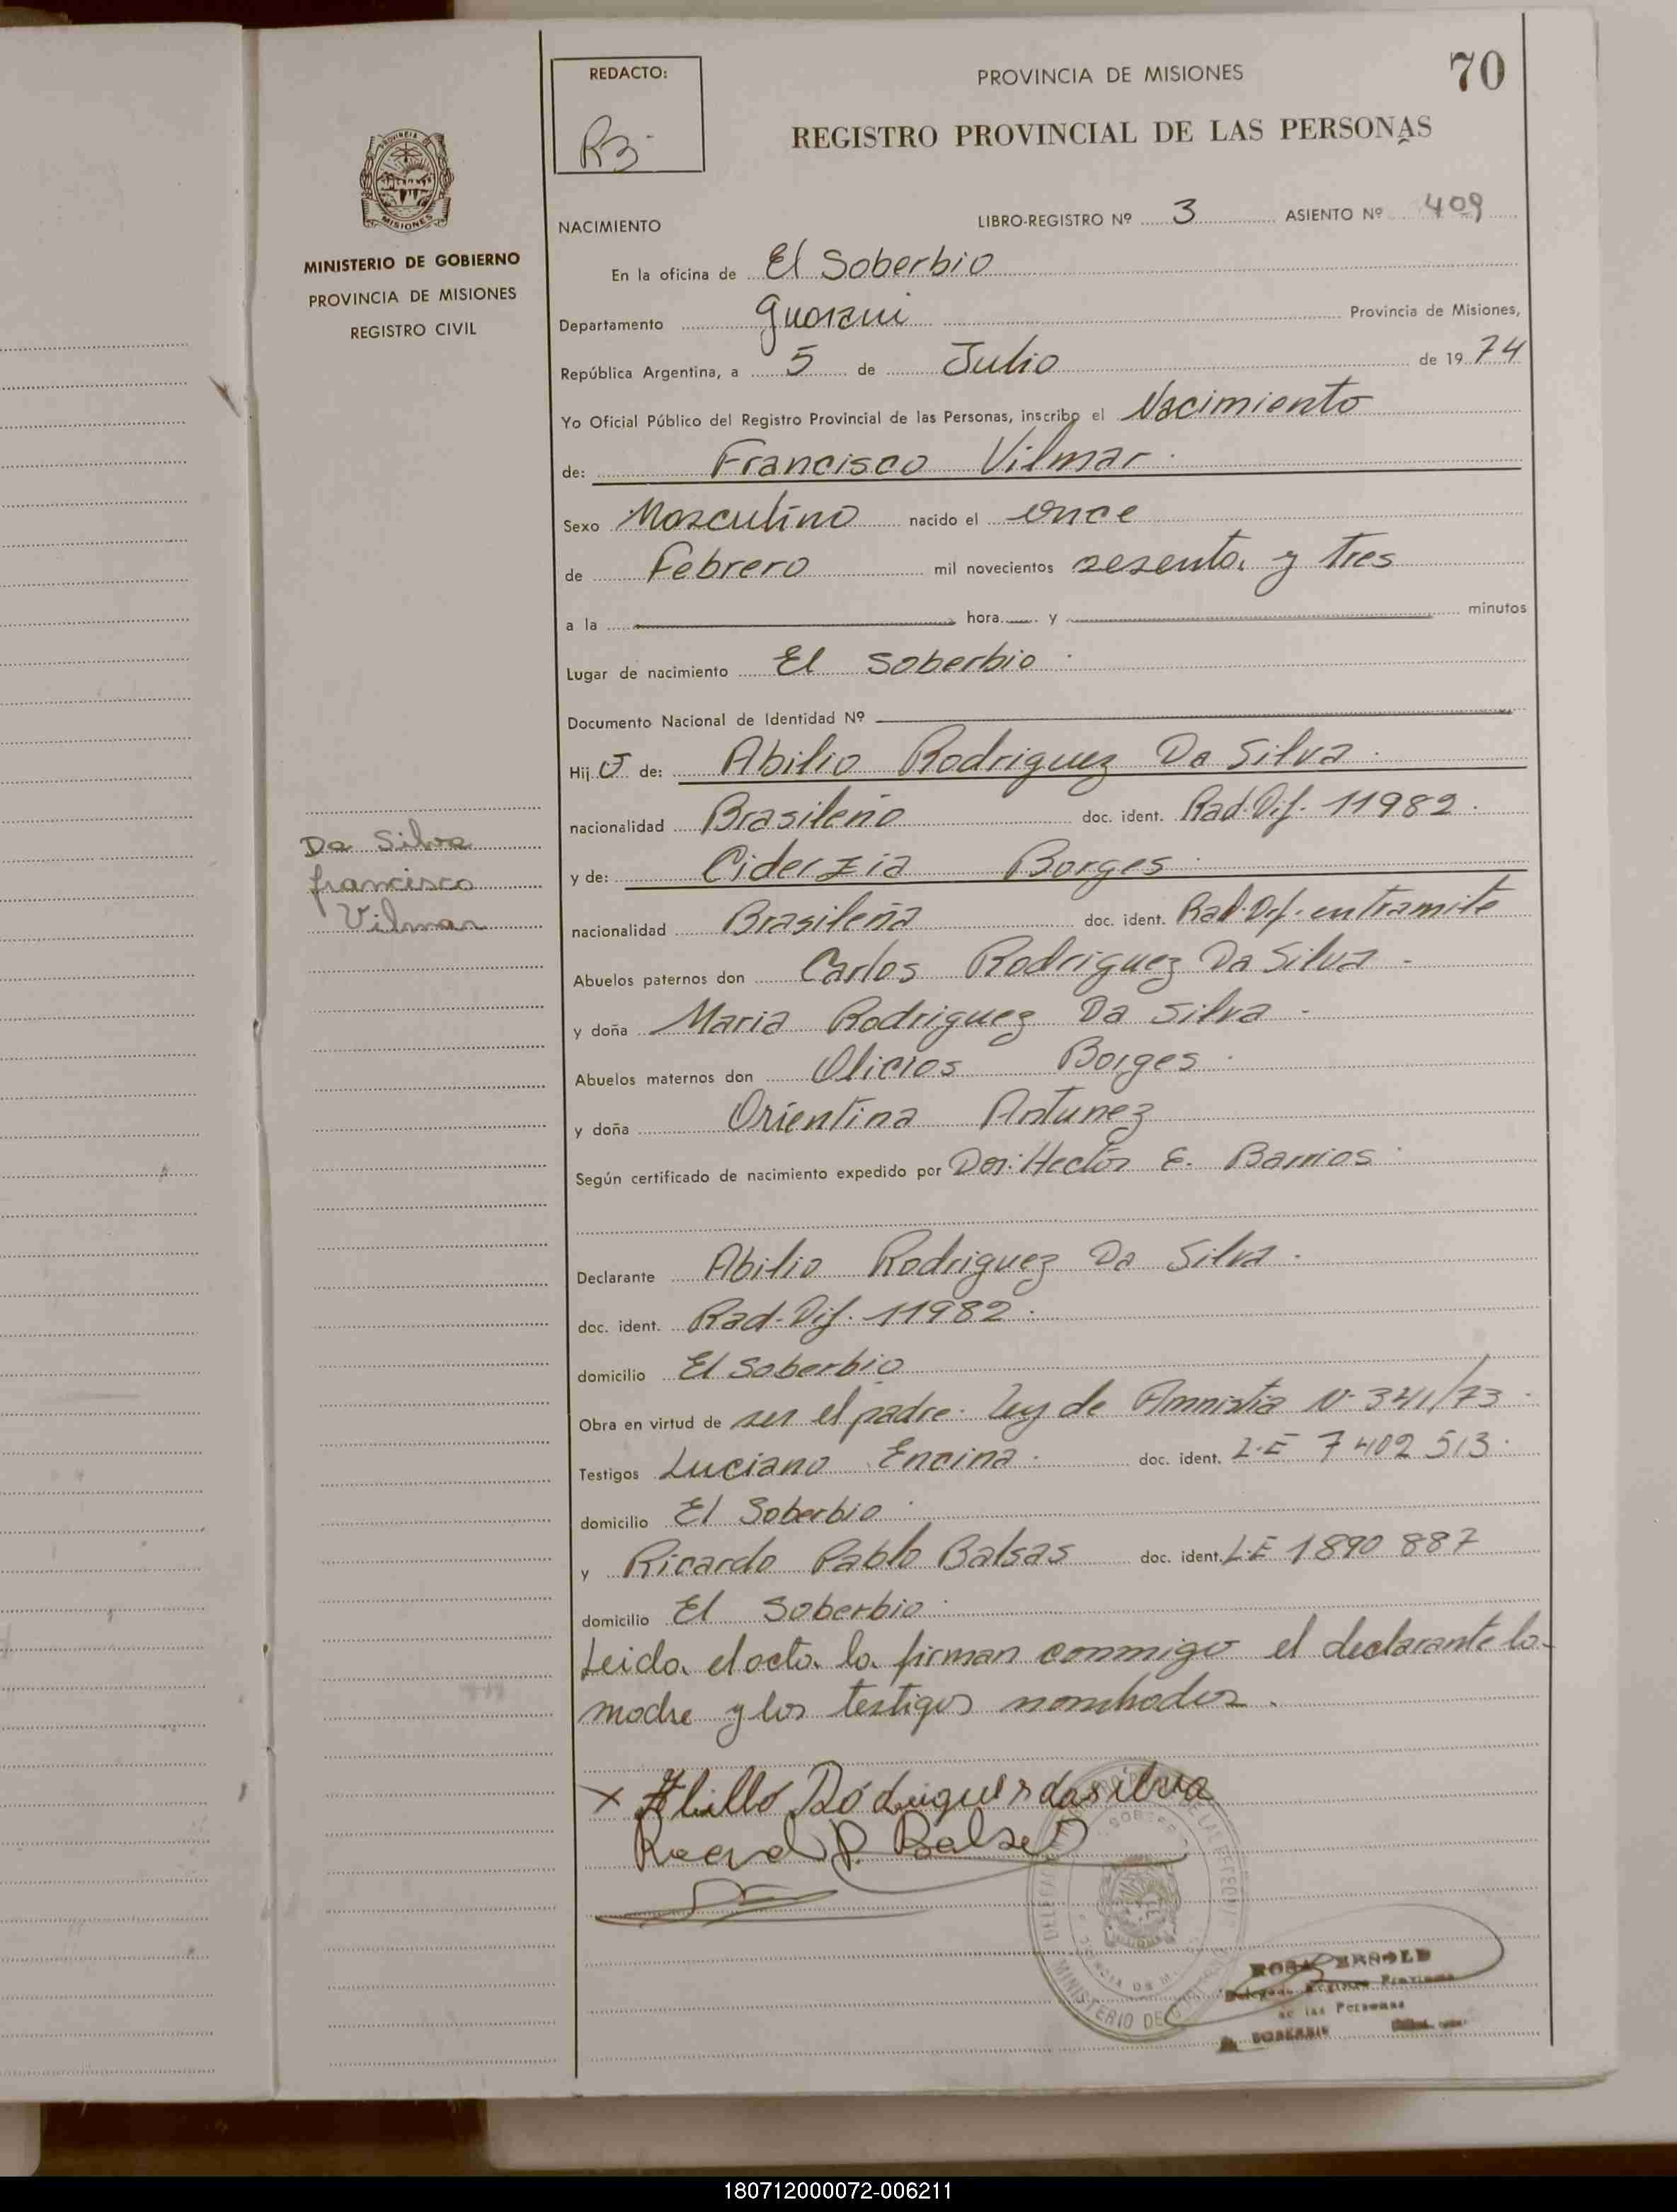 REDACTO:
R3-
PROVINCIA DE MISIONES
70
REGISTRO PROVINCIAL DE LAS PERSONAS
PROVINCIA DE
MISIONES
MINISTERIO DE GOBIERNO
PROVINCIA DE MISIONES
REGISTRO CIVIL
NACIMIENTO
LIBRO-REGISTRO Nº 3 ASIENTO Nº 409
En la oficina de El Soberbio
Departamento Guarani Provincia de Misiones,
República Argentina, a 5 de Julio de 1974
Yo Oficial Público del Registro Provincial de las Personas, inscribo el Nacimiento
de: Francisco Vilmar.
Sexo Masculino nacido el once
de Febrero mil novecientos sesenta y tres
a la hora y minutos
Lugar de nacimiento El Soberbio.
Documento Nacional de Identidad Nº
Hijo de: Abilio Rodriguez Da Silva.
nacionalidad Brasileño doc. ident. Rad. Dif. 11982.
Da Silva
francisco
Vilmar
y de: Ciderzia Borges.
nacionalidad Brasileña doc. ident. Rad. Dif. en tramite
Abuelos paternos don Carlos Rodriguez Da Silva -
y doña Maria Rodriguez Da Silva -
Abuelos maternos don Olicios Borges.
y doña Orientina Antunez
Según certificado de nacimiento expedido por Dor. Hector E. Barrios.
Declarante Abilio Rodriguez Da Silva.
doc. ident. Rad. Dif. 11982.
domicilio El Soberbio
Obra en virtud de ser el padre. Ley de Amnistia N- 341/73.
Testigos Luciano Encina. doc. ident. L.E 7402513.
domicilio El Soberbio.
y Ricardo Pablo Balsas doc. ident. L.E 1890 887
domicilio El Soberbio.
Leida el acta la firman conmigo el declarante la
madre y los testigos nombrados.
x Abillo Rodriguez dasilva
P. Balsa
MINISTERIO DE
ROSA
Registro Provincial
de las Personas
SOBERBIO
180712000072-006211